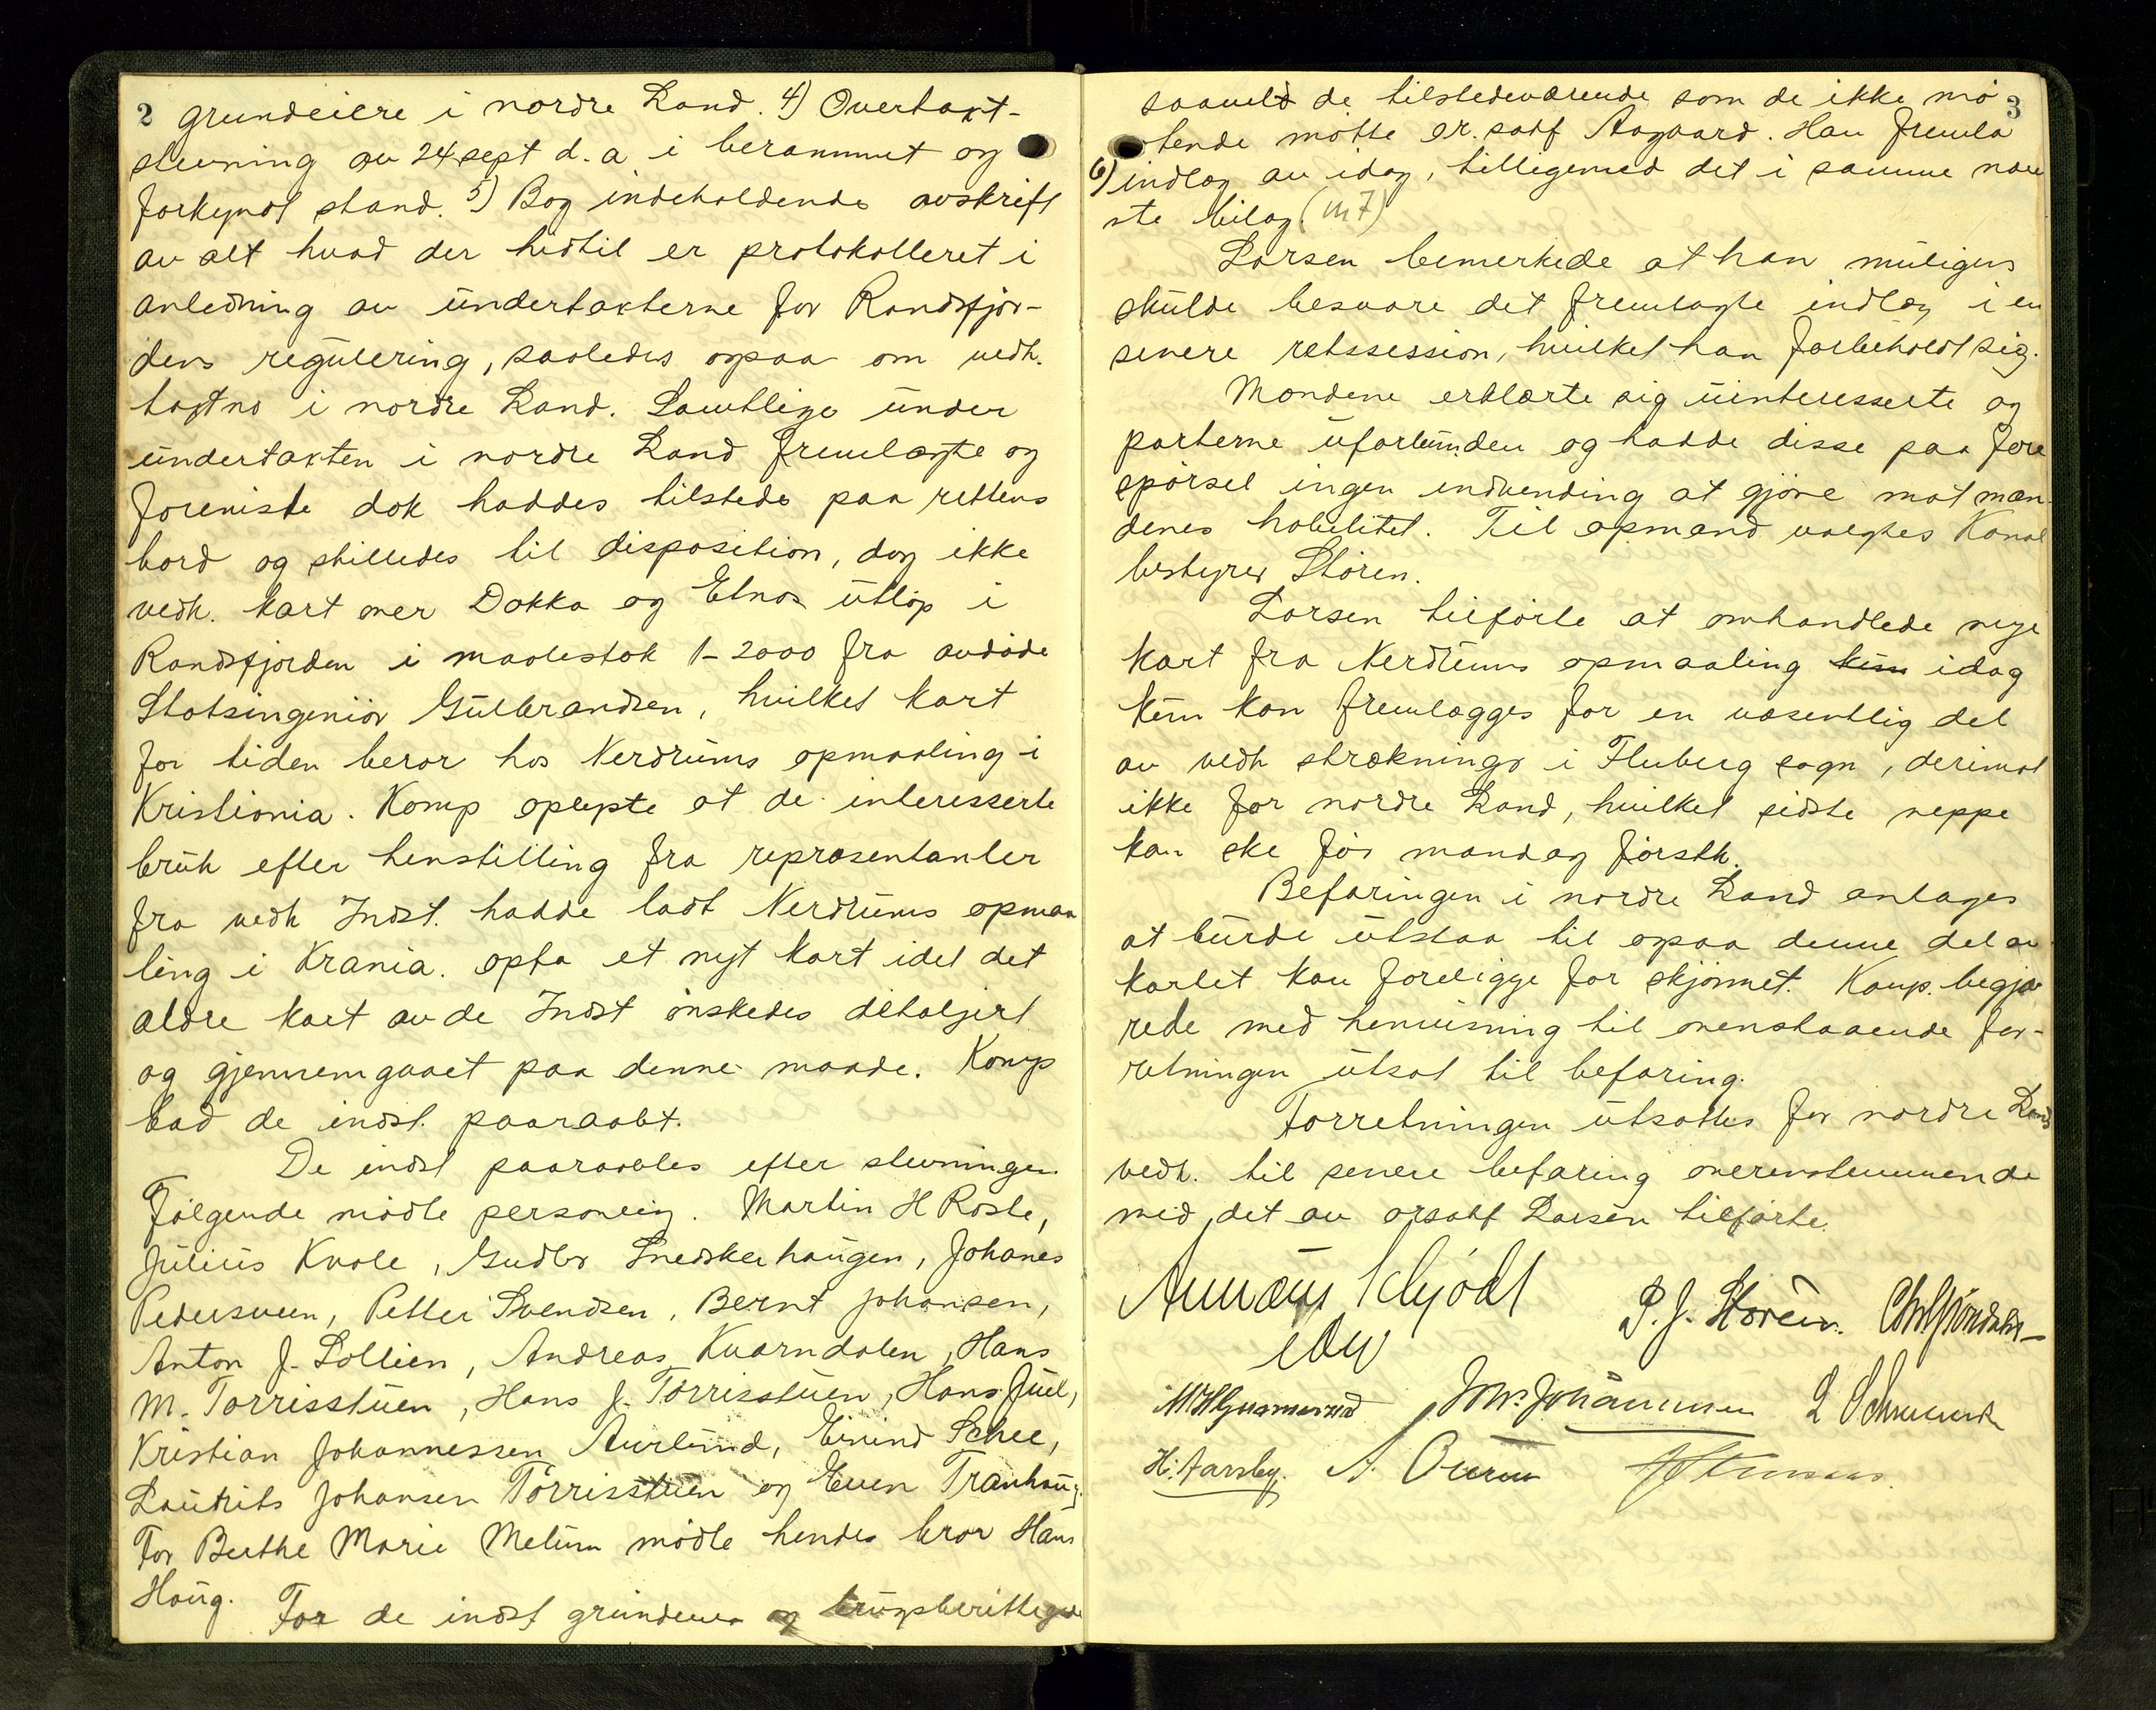 2
grundeiere i nordre Land. 4) Overtaxt-
stevning av 24 sept d. a i berammet og
forkyndt stand. 5) Bog indeholdende avskrift
av alt hvad der hidtil er protokolleret i
anledning av undertaxterne for Randsfjor-
dens regulering, saaledes ogsaa om vedk.
taxtno i nordre Land. Samtlige under
undertaxten i nordre Land fremlagte og
foreviste dok haddes tilstede paa rettens
bord og stilledes til disposition, dog ikke
vedk. kart over Dokka og Etnas utløp i
Randsfjorden i maalestok 1-2000 fra avdøde
Statsingeniør Gulbrandsen, hvilket kart
for tiden beror hos Nerdrums opmaaling i
Kristiania. Komp oplyste at de interesserte
bruk efter henstilling fra repræsentanter
fra vedk Indst. hadde ladt Nerdrums opmaa
ling i Krania. opta et nyt kart idet det
ældre kart av de Indst ønskedes detaljert
og gjennemgaaet paa denne maade. Komp
bad de indst. paaraabt.
De indst paaraabtes efter stevningen.
Følgende mødte personlig. Martin H Roste,
Julius Kvale, Gudbr Snedkerhaugen, Johanes
Pedersveen, Petter Svendsen, Bernt Johansen,
Anton J. Sollien, Andreas Kvarndalen, Hans
M. Torrisstuen, Hans J. Tørrisstuen, Hans Juel,
Kristian Johannessen Aurlund, Eivind Schee,
Lauritz Johansen Tørrisstuen og Even Tranhaug.
For Berthe Marie Melum mødte hendes bror Hans
Haug.
For de indst grundeiere og brugsberettigede
3
saavel de tilstedeværende som de ikke mø
tende møtte or. satf Aagaard. Han fremla
6) indlæg av idag, tilligemed det i samme næv
nte bilag (nr 7)
Larsen bemerkede at han muligens
skulde besvare det fremlagte indlæg i en
senere retssession, hvilket han forbeholdt sig.
Mændene erklærte sig uinteresserte og
parterne uforbunden og hadde disse paa fore
spørsel ingen indvending at gjøre mot mæn-
denes habilitet. Til opmand valgtes Kanal
bestyrer Støren.
Larsen tilførte at omhandlede nye
kart fra Nerdrums opmaaling kun idag
kun kan fremlægges for en væsentlig del
av vedk strækninger i Fluberg sogn, derimot
ikke for nordre Land, hvilket sidste neppe
kan ske før mandag førstk.
Befaringen i nordre Land antages
at burde utstaa til ogsaa denne del av
kartet kan foreligge for skjønnet. Komp. begjæ
rede med henvisning til ovenstaaende for-
retningen utsat til befaring.
Forretningen utsattes for nordre Land
vedk. til senere befaring overensstemmende
med det av orsatf Larsen tilførte.
Annæus Schjödt
P. J. Støren.
Johs. Johannessen
H. Aarsby. A.